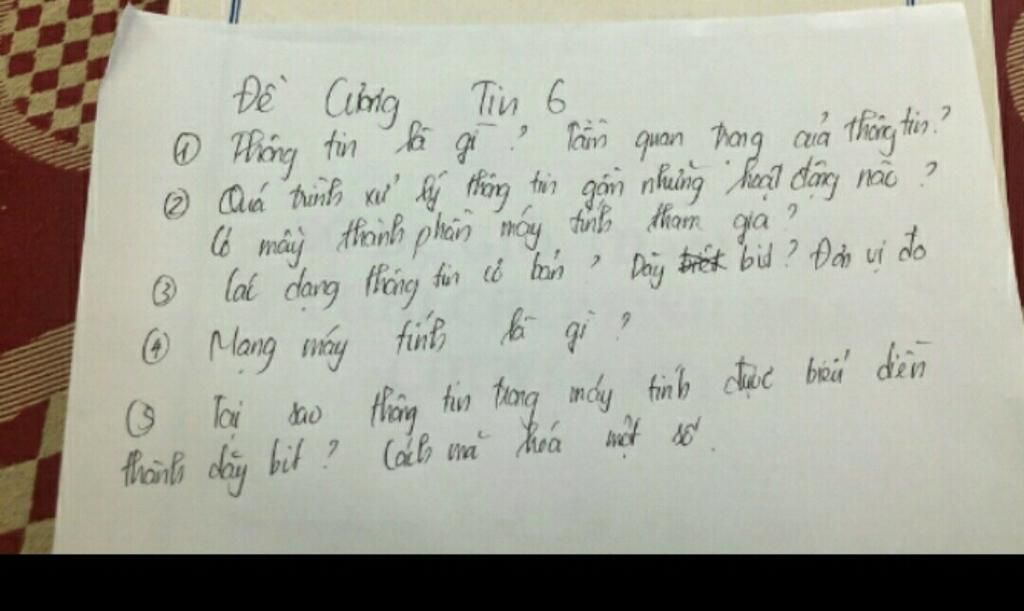 Đề Cương Tin 6
① Thông tin là gì? Tầm quan trọng của thông tin?
② Quá trình xử lý thông tin gồm những hoạt động nào?
Có mấy thành phần máy tính tham gia?
③ Các dạng thông tin cơ bản? Dãy bit? Đơn vị đo
④ Mạng máy tính là gì?
⑤ Tại sao thông tin trong máy tính được biểu diễn
thành dãy bit? Cách mã hoá một số.